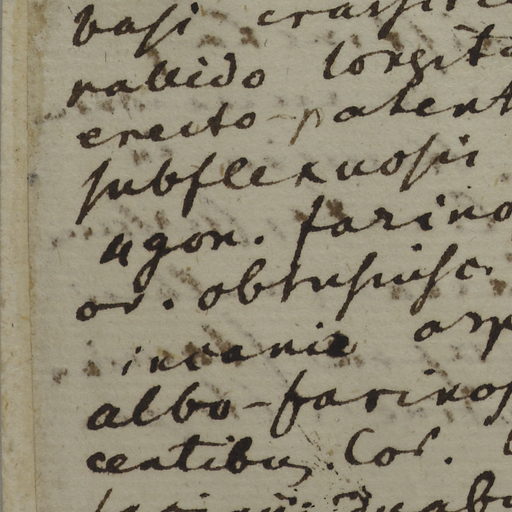 basi crassi
pallido longit
erecto-patent
subflexuosis
ugon. farino
or. obtusiusc.
incanis asp
albo-farinos
centibus. Cor.